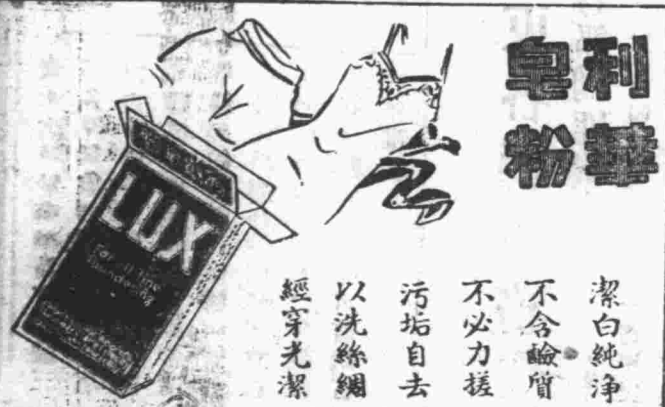 利華
皂粉
潔白純淨
不含鹼質
不必力搓
污垢自去
以洗絲綢
經穿光潔
LUX
For all fine
laundering